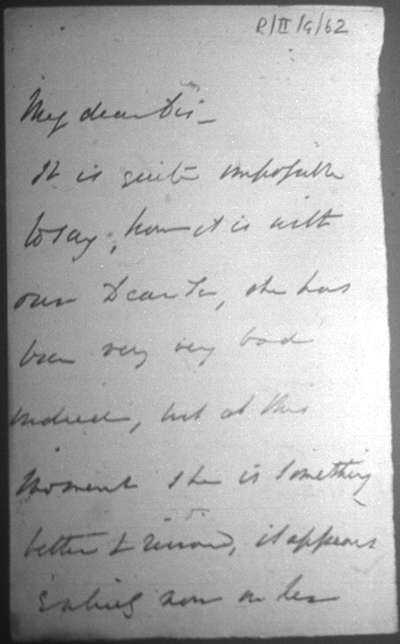 P/II/G/62
My dear Dis—
It is quite impossible
to say, how it is with
our Dear, she has
been very very bad
indeed, but at this
moment she is something
better &, it appears
now on her